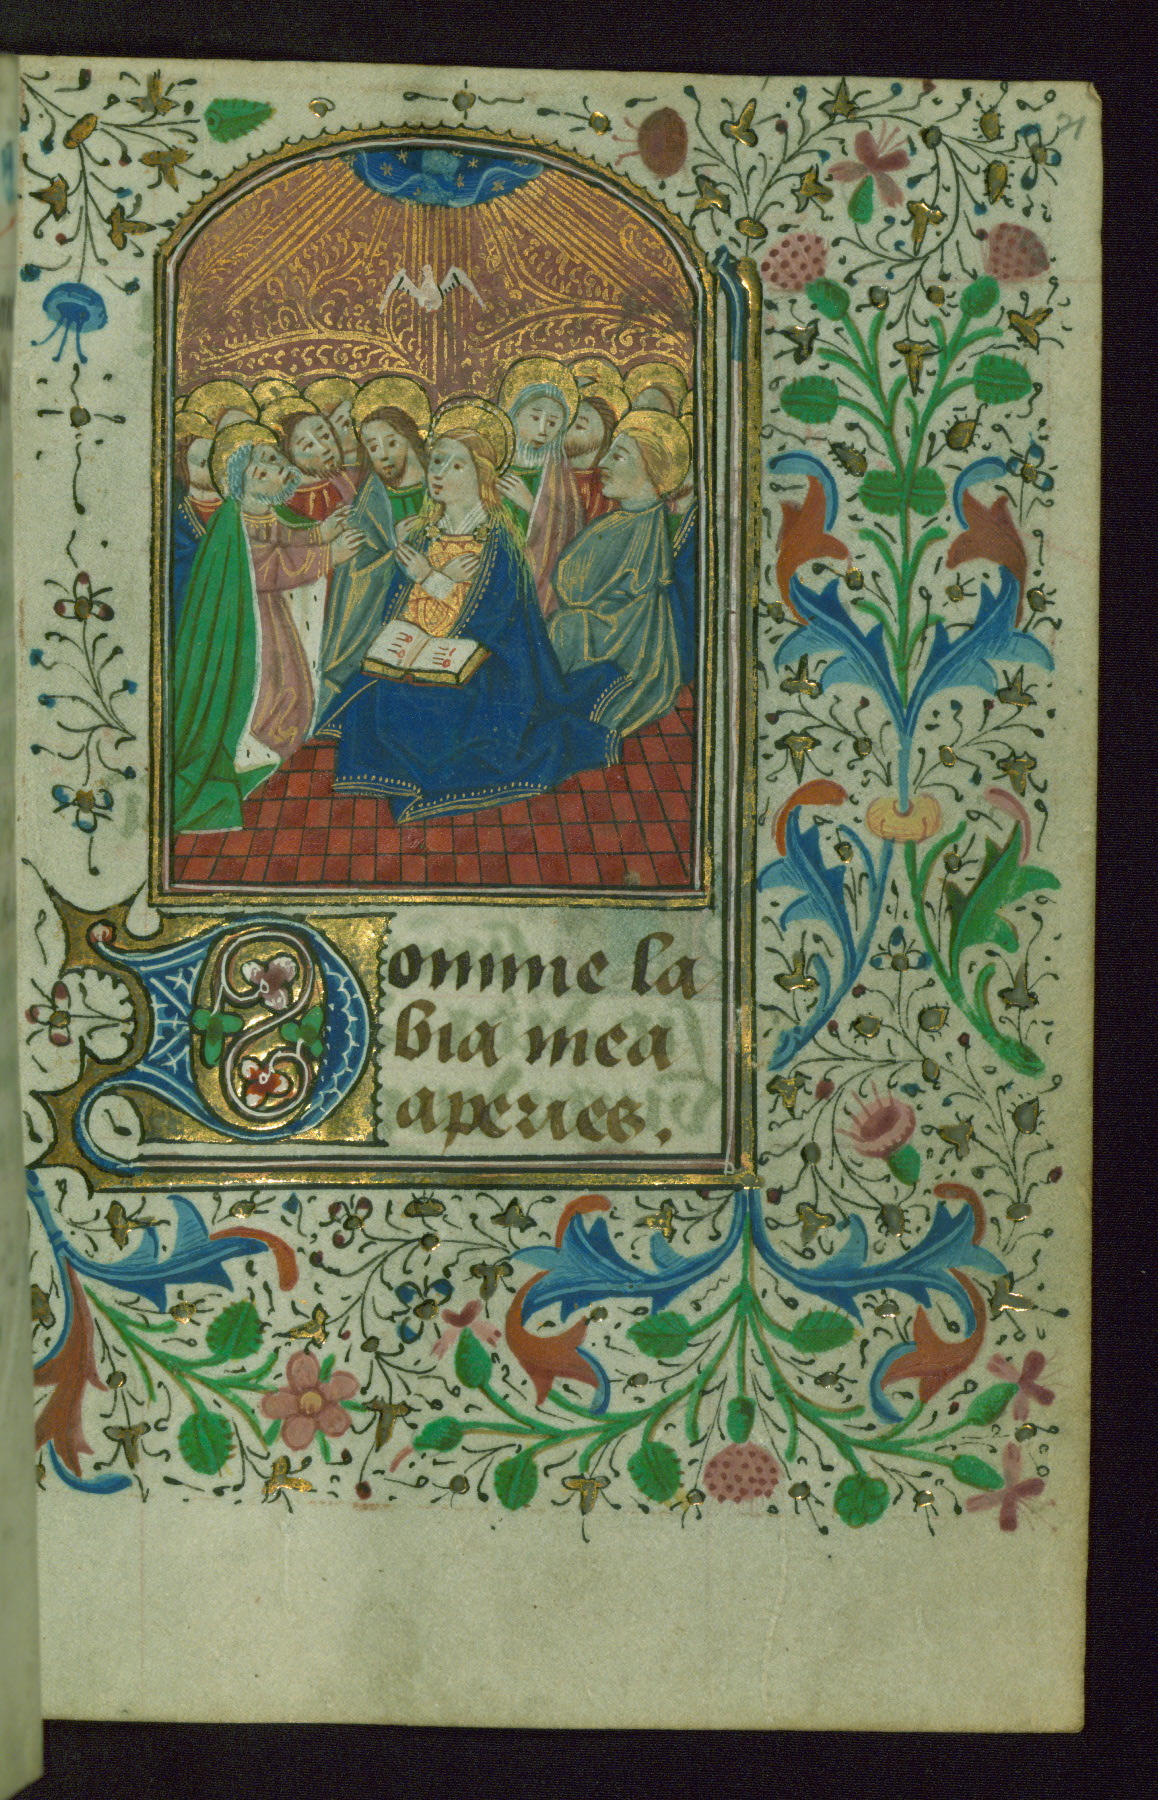 21
Domine la
bia mea
aperies.